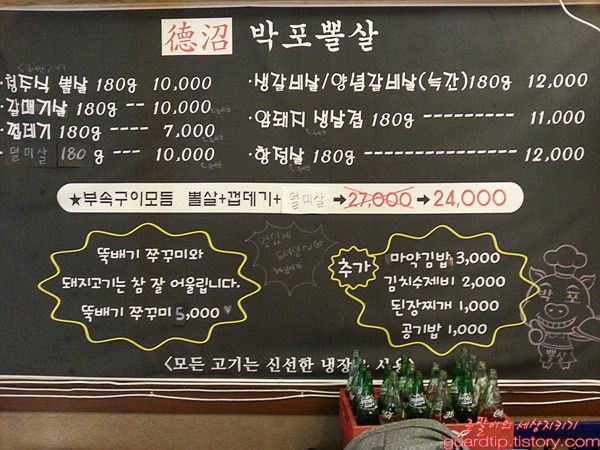 德沼 박포뽈살
·형수식 뽈살 180g 10,000
·갈매기살 180g -- 10,000
·껍데기 180g ---- 7,000
·덜미살 180 g --- 10,000
·생갈비살/양념갈비살(늑간)180g 12,000
·암돼지 생삼겹 180g --------- 11,000
·항정살 180g --------------- 12,000
★부속구이모듬 뽈살+껍데기+덜미살→27,000→24,000
뚝배기 쭈꾸미와
돼지고기는 참 잘 어울립니다.
뚝배기 쭈꾸미 5,000
추가
마약김밥 3,000
김치수제비 2,000
된장찌개 1,000
공기밥 1,000
박포
뽈살
<모든 고기는 신선한 냉장육 사용>
곰팔이의 세상지키기
guardtip.tistory.com